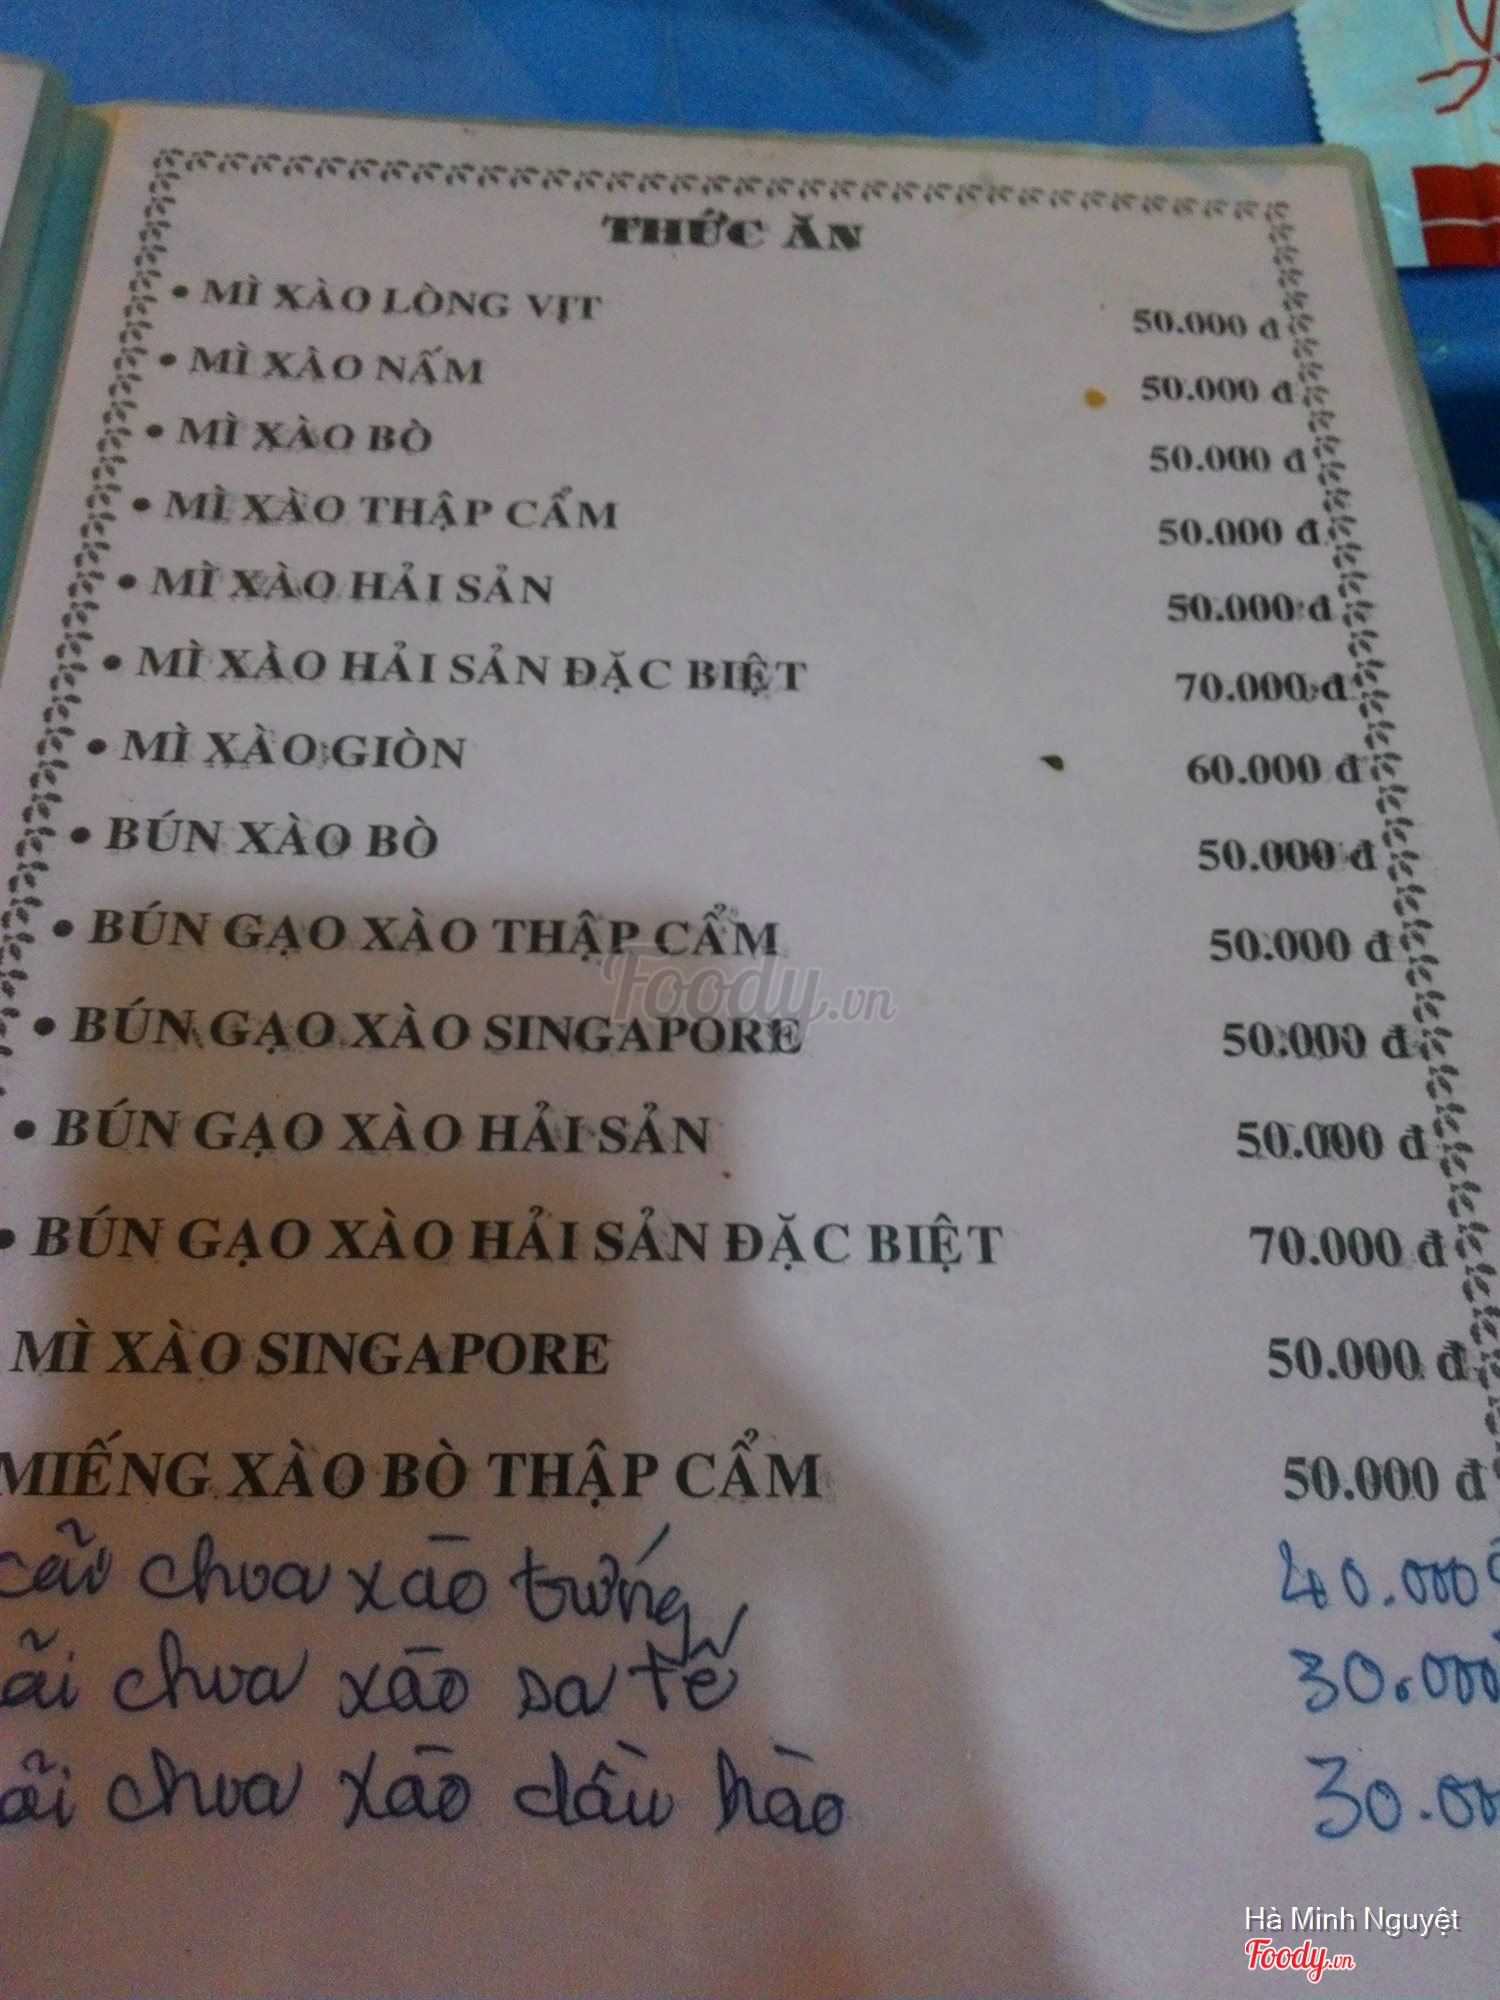 THỨC ĂN
• MÌ XÀO LÒNG VỊT 50.000 đ
• MÌ XÀO NẤM 50.000 đ
• MÌ XÀO BÒ 50.000 đ
• MÌ XÀO THẬP CẨM 50.000 đ
• MÌ XÀO HẢI SẢN 50.000 đ
• MÌ XÀO HẢI SẢN ĐẶC BIỆT 70.000 đ
• MÌ XÀO GIÒN 60.000 đ
• BÚN XÀO BÒ 50.000 đ
• BÚN GẠO XÀO THẬP CẨM 50.000 đ
Foody.vn
• BÚN GẠO XÀO SINGAPORE 50.000 đ
• BÚN GẠO XÀO HẢI SẢN 50.000 đ
• BÚN GẠO XÀO HẢI SẢN ĐẶC BIỆT 70.000 đ
MÌ XÀO SINGAPORE 50.000 đ
MIẾNG XÀO BÒ THẬP CẨM 50.000 đ
cãi chua xào trứng 40.000
ãi chua xào sa tế 30.000
ãi chua xào dầu hào 30.00
Hà Minh Nguyệt
Foody.vn